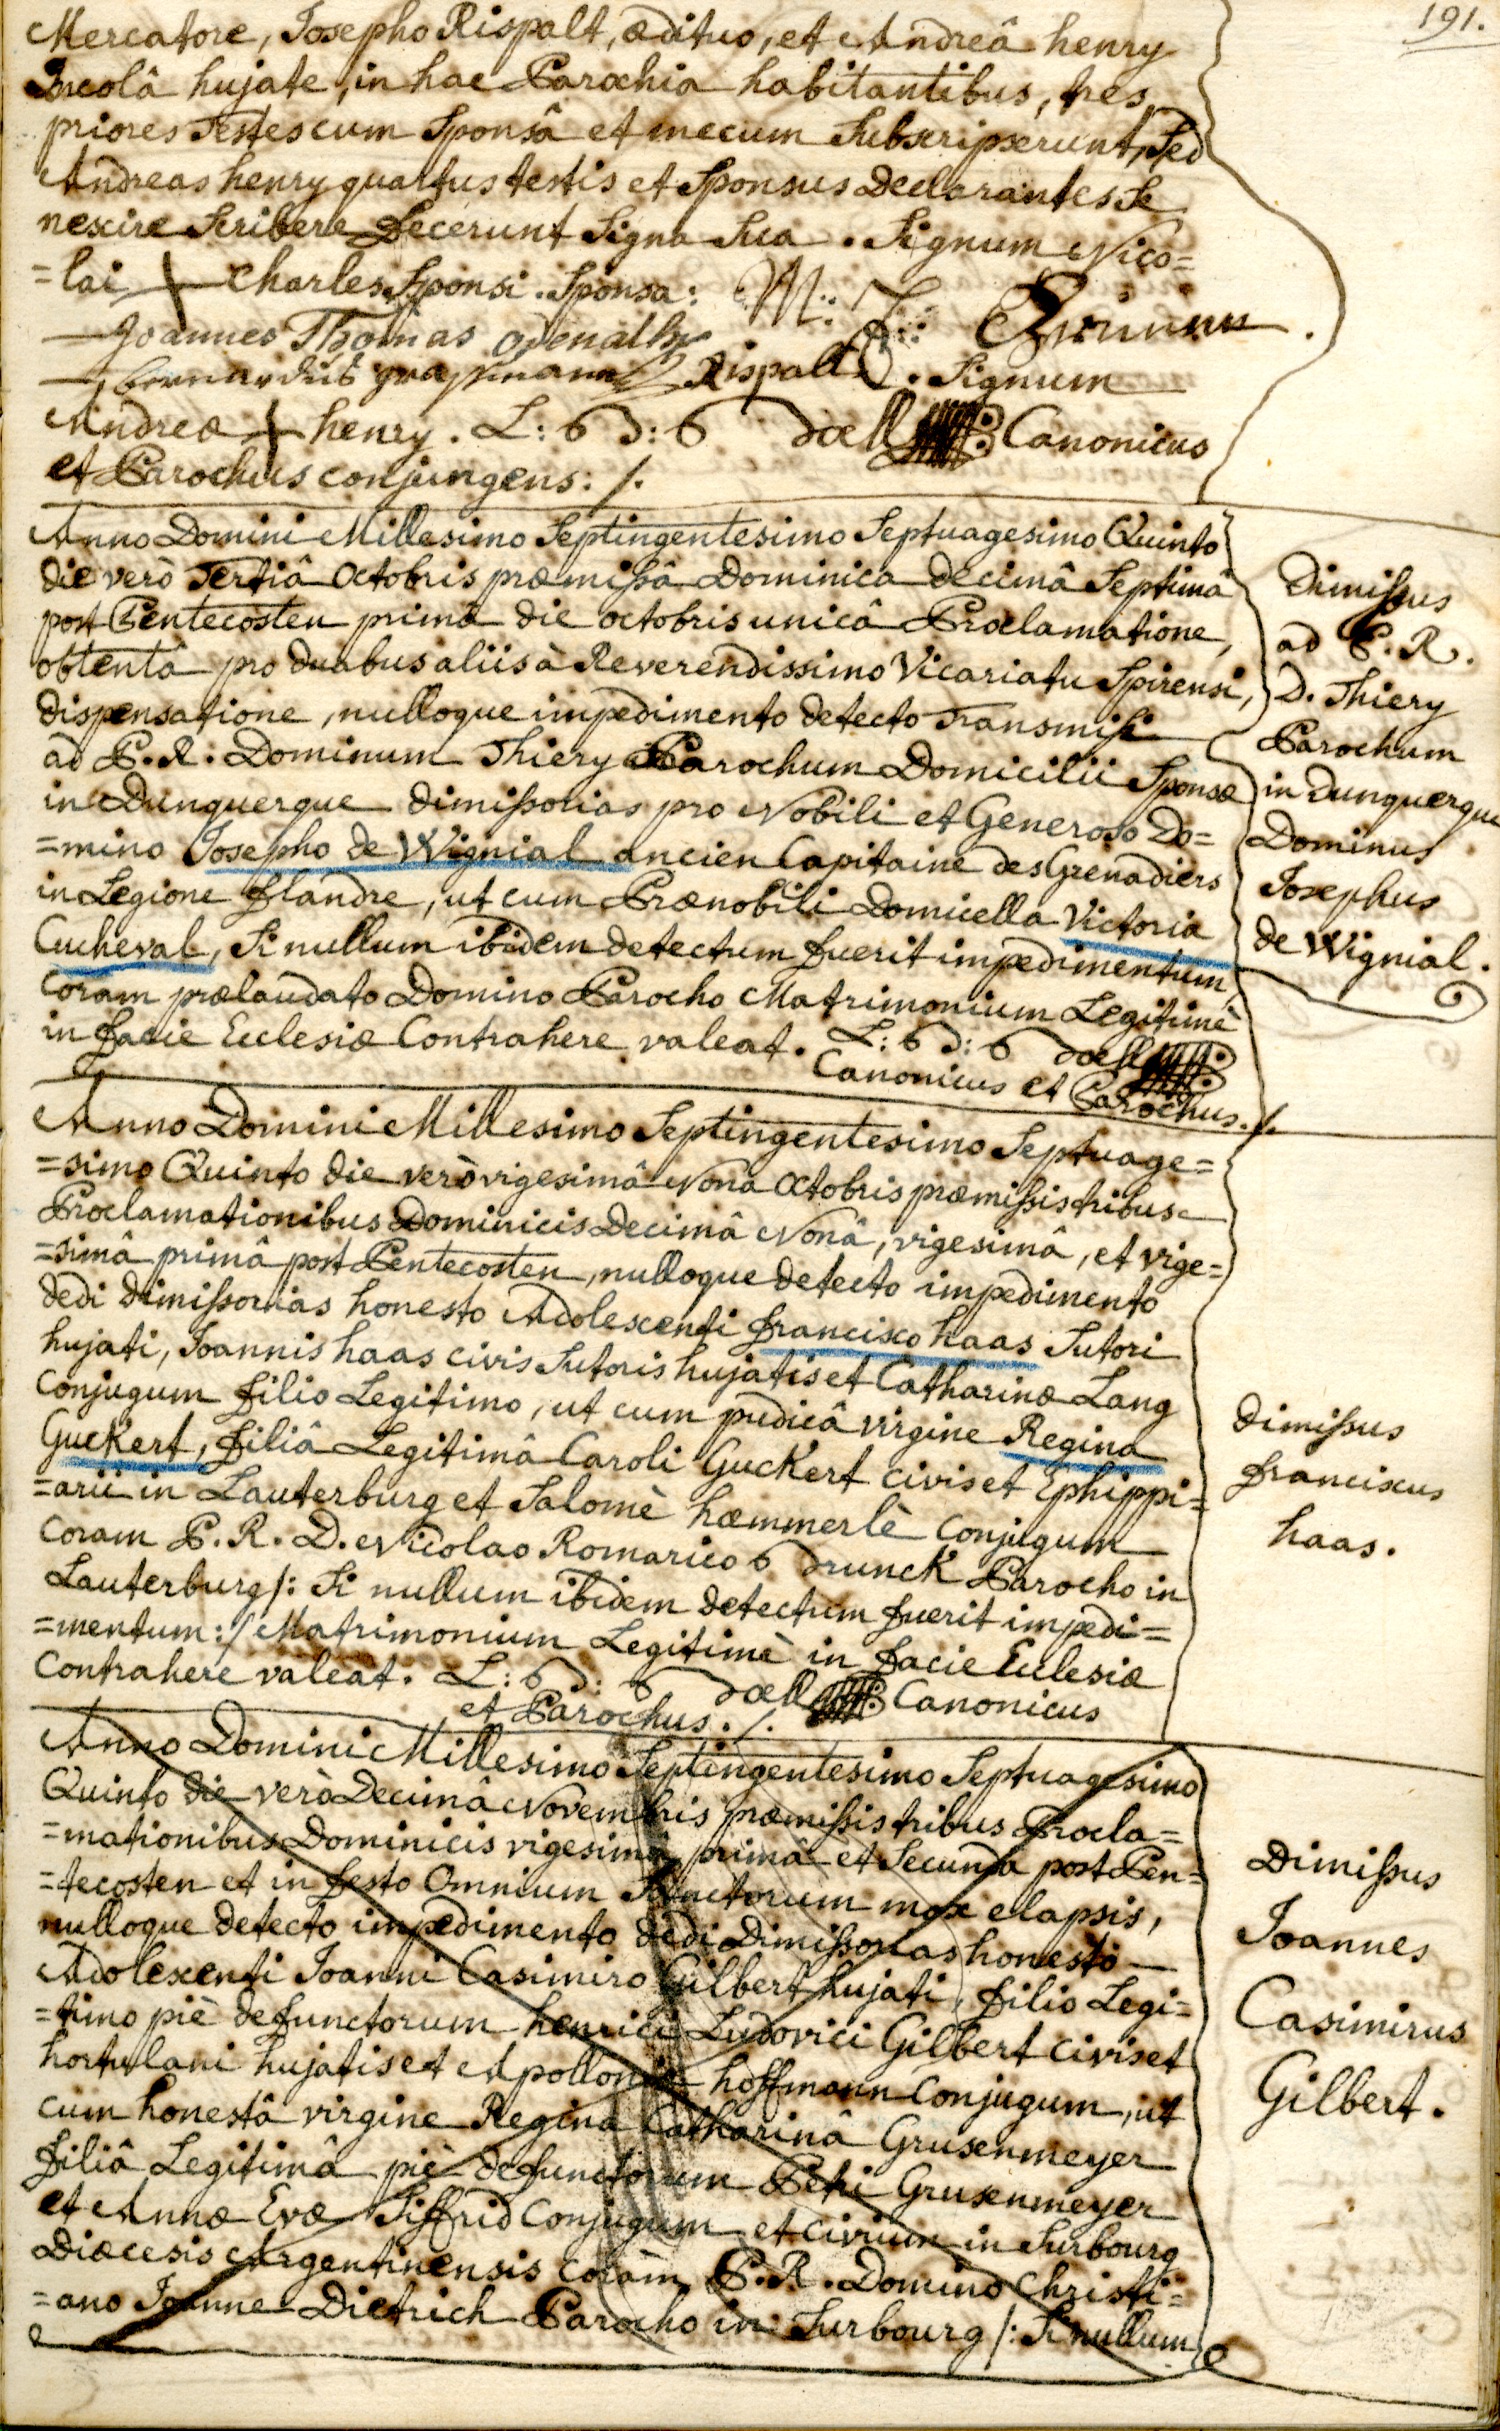 191.
Mercatore, Josepho Rispalt, ædituo, et Andreâ henry
Incolâ hujate, in hac Parochia habitantibus, tres
priores Testes cum Sponsâ et mecum Subscripserunt, Sed
Andreas henry quartus testis et Sponsus Declarantes Se
nescire Scribere Fecerunt Signa Sua. Signum Nico=
=lai + Charles Sponsi. Sponsa: M:
Joannes Thomas
Rispalt. Signum
Andreæ + henry. L: Doell Canonicus
et Parochus conjungens: /.
Anno Domini Millesimo Septingentesimo Septuagesimo Quinto
die verò Tertiâ Octobris præmissâ Dominica decimâ Septimâ
post Pentecosten primâ die octobris unicâ Proclamatione,
obtentâ pro duabus aliis à Reverendissimo Vicariatu Spirensi,
dispensatione, nulloque impedimento detecto Transmisi
ad P. R. Dominum Thiery Parochum Domicilii Sponsæ
in Dunquerque dimissorias pro Nobili et Generoso Do=
=mino Josepho de Wignial ancien Capitaine des Grenadiers
in Legione Flandre, ut cum Prænobili Domicella Victoria
Cucheval, Si nullum ibidem detectum fuerit impedimentum,
Coram prælaudato Domino Parocho Matrimonium Legitimè
in Facie Ecclesiæ Contrahere valeat. L: Doell
Canonicus et Parochus. /.
Dimissus
ad P. R.
D. Thiery
Parochum
in Dunquerque
Dominus
Josephus
de Wignial.
Anno Domini Millesimo Septingentesimo Septuage=
=simo Quinto die verò vigesimâ Nona Octobris præmissis tribus
Proclamationibus Dominicis Decimâ Nonâ, vigesimâ, et vige=
=simâ primâ post Pentecosten, nulloque detecto impedimento
dedi dimissorias honesto Adolescenti Francisco haas Sutori
hujati, Joannis haas civis Sutoris hujatis et Catharinæ Lang
Conjugum Filio Legitimo, ut cum pudicâ virgine Regina
Guckert, Filiâ Legitimâ Caroli Guckert civis et Ephippi=
=arii in Lauterburg et Salomè hæmmerlè Conjugum
Coram P. R. D. Nicolao Romarico Drunck Parocho in
Lauterburg /: Si nullum ibidem detectum fuerit impedi=
=mentum :/ Matrimonium Legitimè in Facie Ecclesiæ
Contrahere valeat. L: Doell Canonicus
et Parochus. /.
Dimissus
Franciscus
haas.
Anno Domini Millesimo Septingentesimo Septuagesimo
Quinto die verò Decimâ Novembris præmissis tribus Procla=
=mationibus Dominicis vigesimâ primâ et Secundâ post Pen=
=tecosten et in Festo Omnium Sanctorum mox elapsis,
nulloque detecto impedimento dedi Dimissorias honesto
Adolescenti Joanni Casimiro Gilbert hujati, Filio Legi=
=timo piè defunctorum henrici Ludovici Gilbert civis et
hortulani hujatis et Apolloniæ hoffmann Conjugum, ut
cum honestâ virgine Regina Catharinâ Grusenmeyer
Filiâ Legitimâ piè defunctorum Petri Grusenmeyer
et Annæ Evæ Siffrid Conjugum et civium in Surbourg
Diœcesis Argentinensis coràm P. R. Domino Christi=
=ano Joanne Dietrich Parocho in Surbourg /: Si nullum
Dimissus
Joannes
Casimirus
Gilbert.